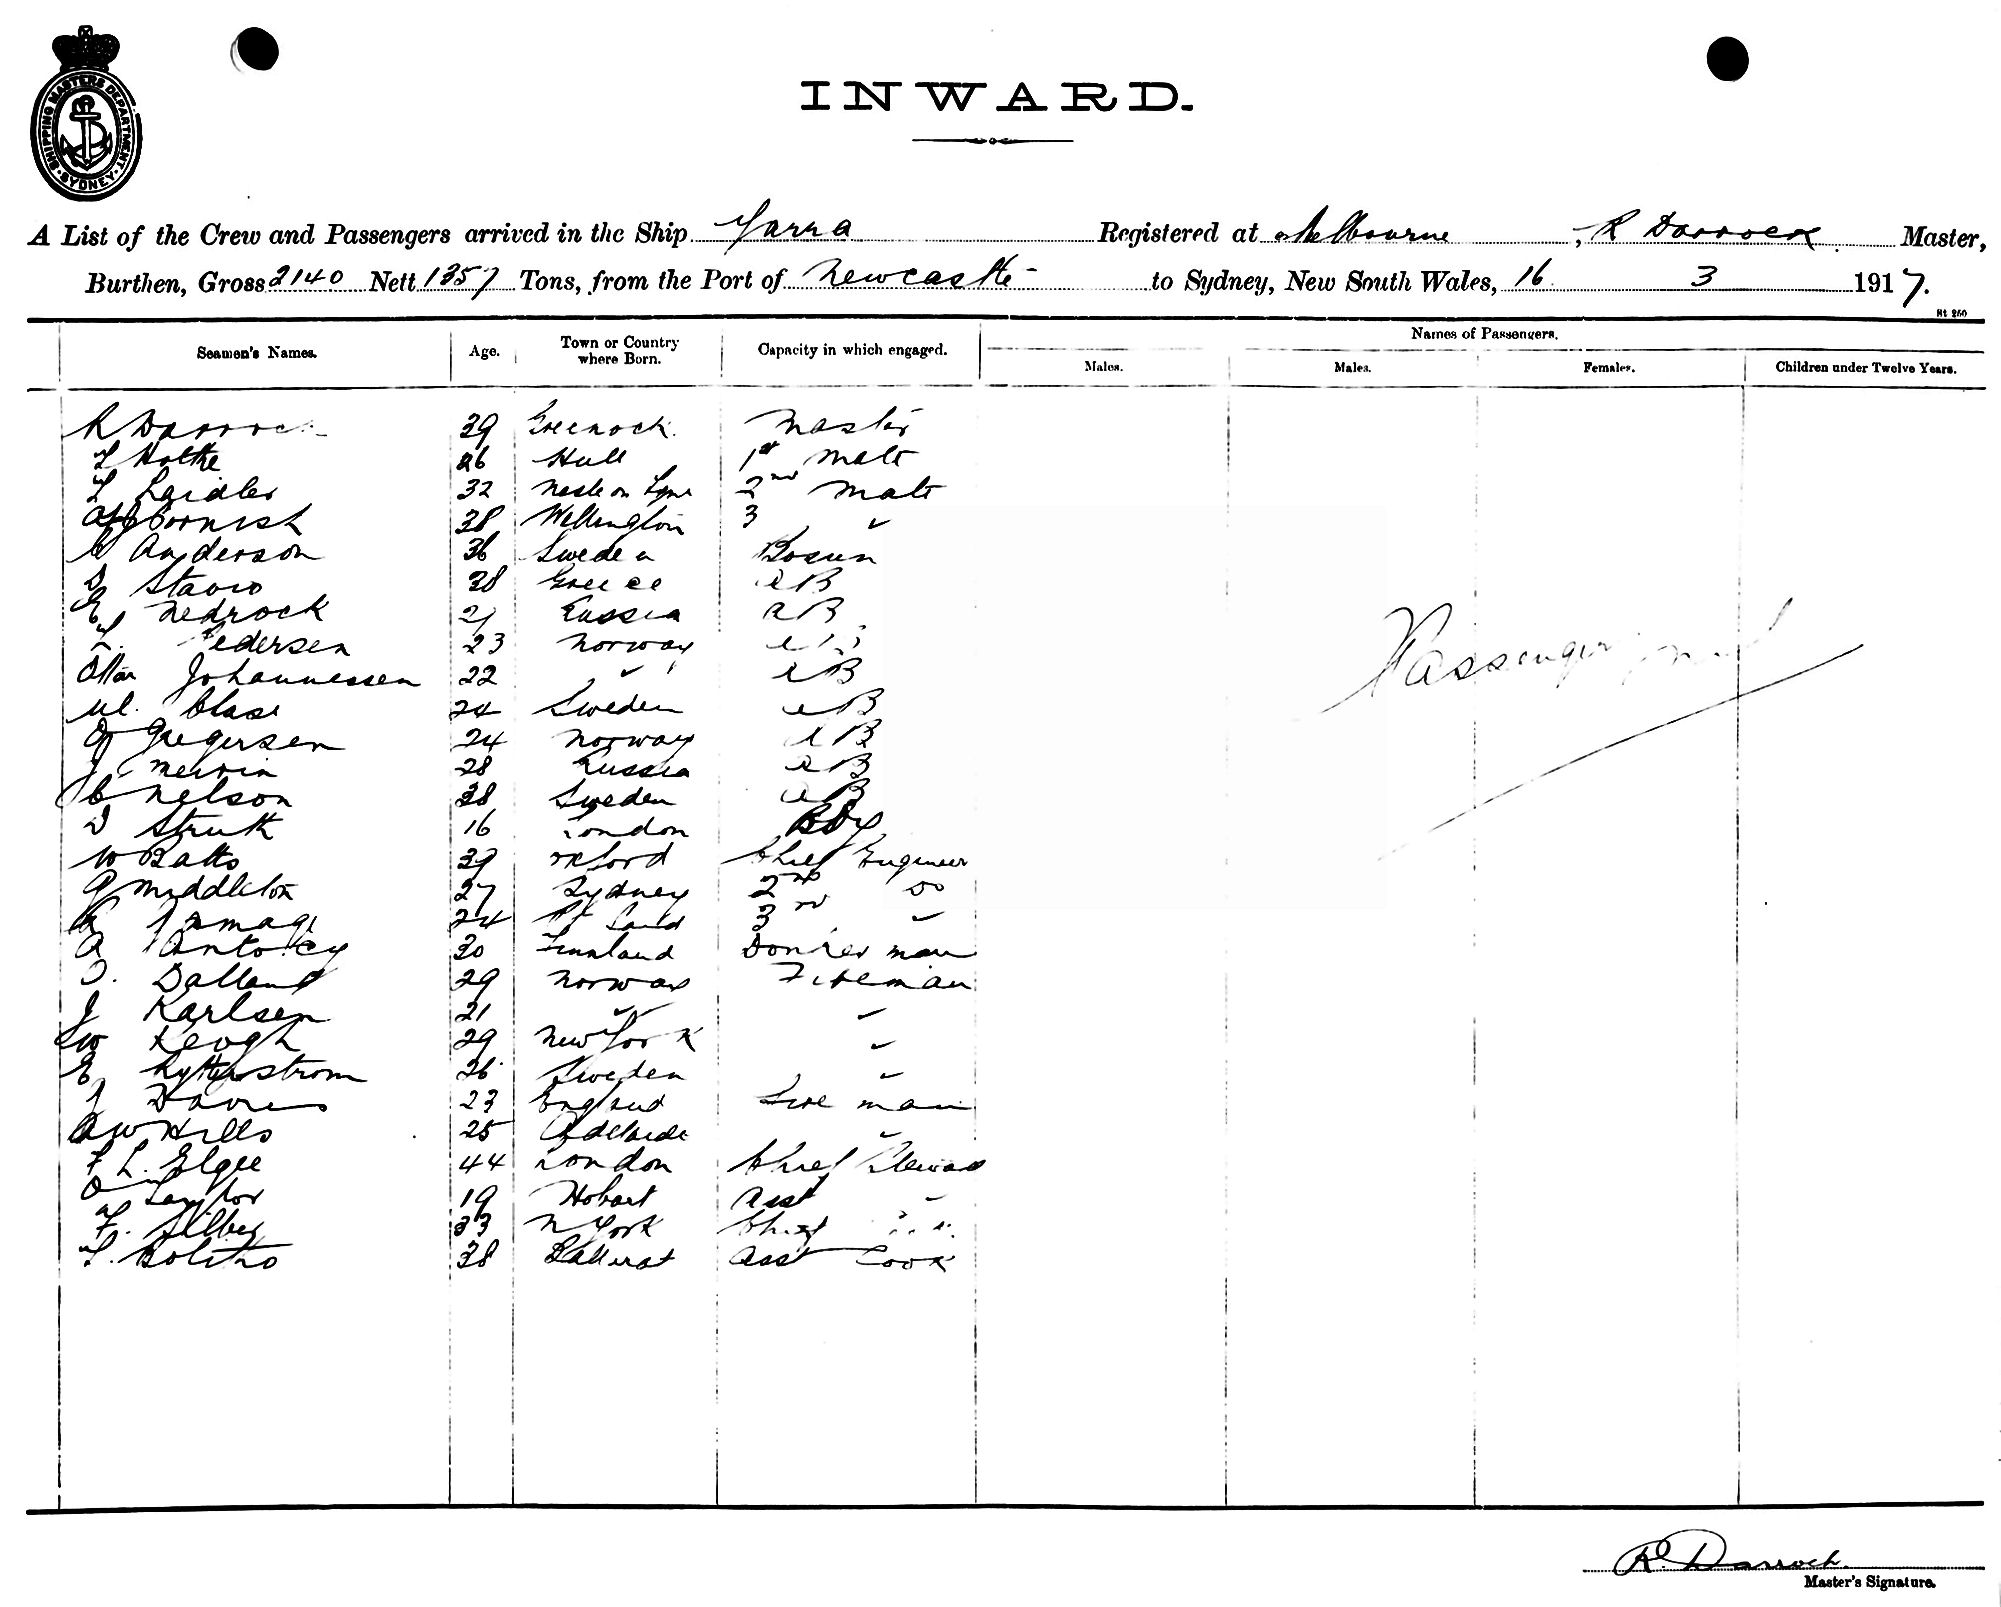 SHIPPING MASTERS DEPARTMENT
SYDNEY
INWARD.
A List of the Crew and Passengers arrived in the Ship Yarra Registered at Melbourne, R Darroch Master,
Burthen, Gross 2140 Nett 1357 Tons, from the Port of Newcastle to Sydney, New South Wales, 16 3 1917.
Seamen's Names. Age. Town or Country where Born. Capacity in which engaged. Names of Passengers.
Males. Males. Females. Children under Twelve Years.
R Darroch 39 Greenock. Master
Hothe 26 Hull 1st Mate
Laidler 32 2nd Mate
Cornish 38 Wellington 3 "
Anderson 36 Sweden Bosun
Stavro 38 Greece AB
E Nedrock 21 Russia AB
Pedersen 23 Norway AB
Johannessen 22 " AB
Blase 24 Sweden AB
Gregersen 24 Norway AB
28 Russia AB
C Nelson 38 Sweden AB
D Strutt 16 London Boy
W Batts 39 Oxford Chief Engineer
G Middleton 27 Sydney 2nd Do
24 3rd "
A 30 Finnland Donkey man
Dalland 29 Norway Fireman
J Karlsen 21 " "
W Keogh 29 New York "
E 26 Sweden "
J Davies 23 England Fire man
A W Hills 25 Adelaide "
F L. Elgee 44 London Chief Steward
Taylor 19 Hobart Asst "
F. 33 N York Chief
Bolitho 38 Ballarat Asst Cook
Passengers
R. Darroch.
Master's Signature.